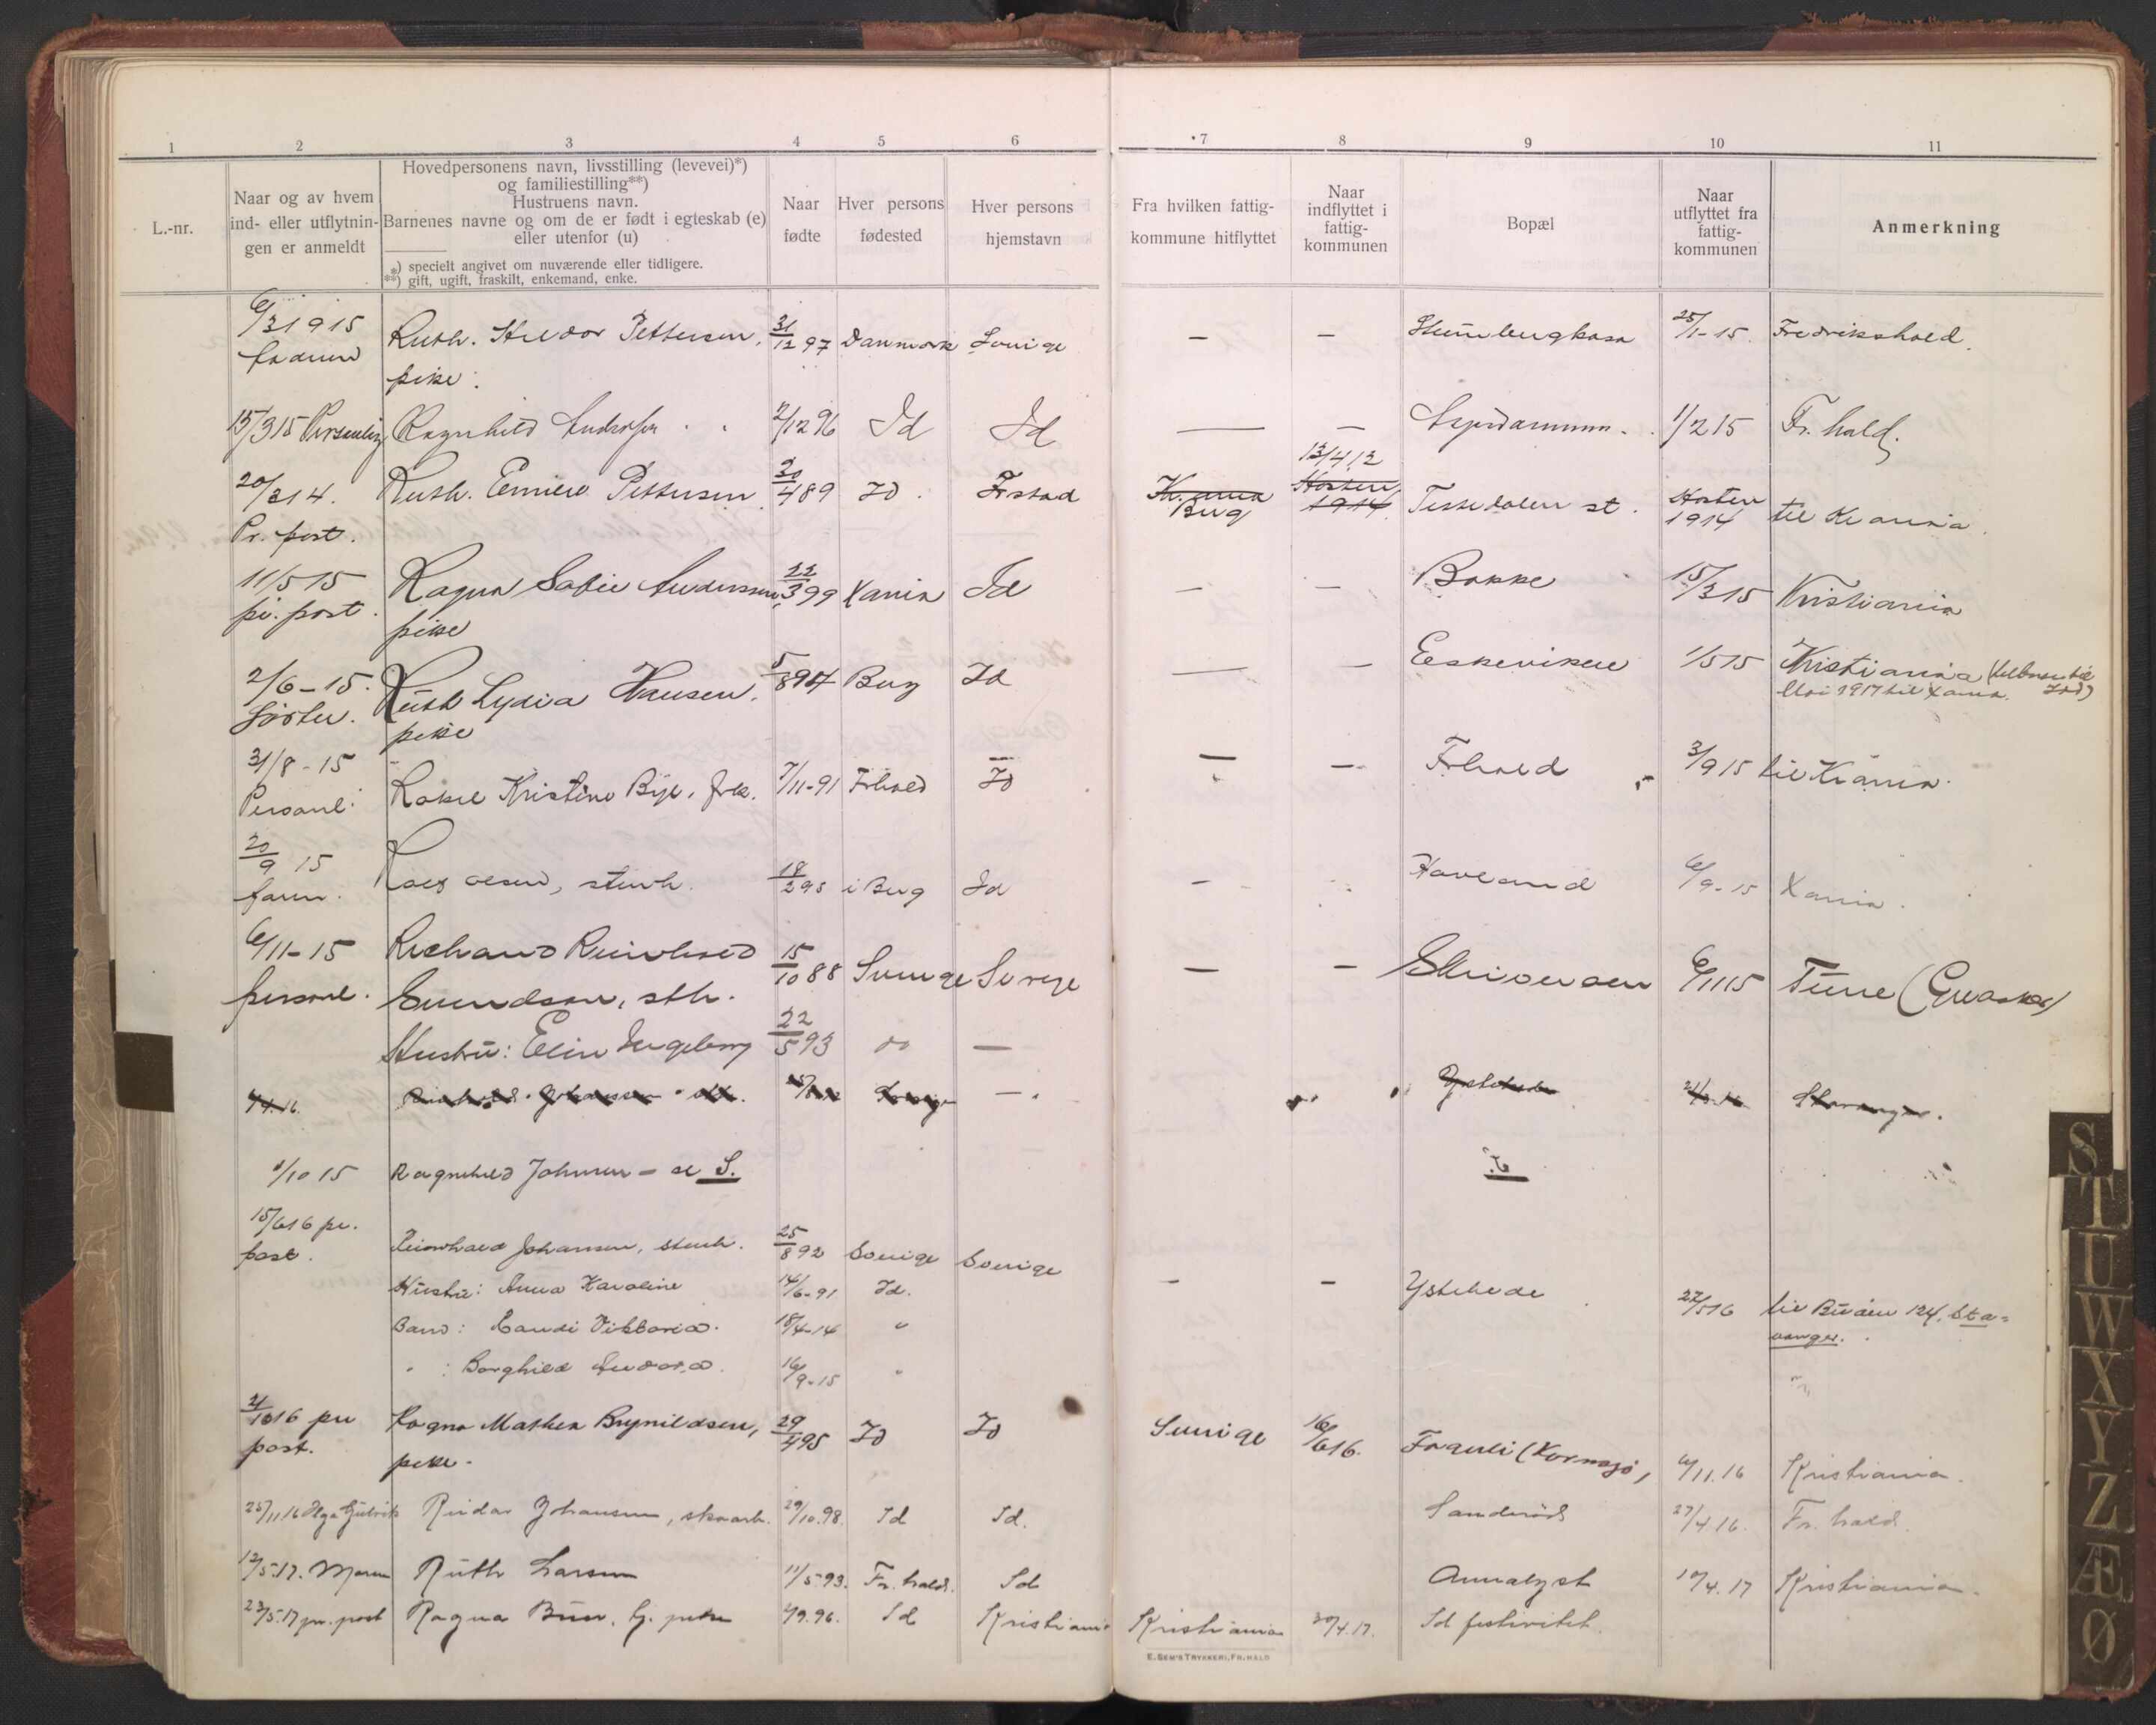 1 2 3 4 5 6 7 8 9 10 11
L.-nr.
Naar og av hvem
ind- eller utflytnin-
gen er anmeldt
Hovedpersonens navn, livsstilling (levevei)*)
og familiestilling**)
Hustruens navn.
Barnenes navne og om de er født i egteskab (e)
eller utenfor (u)
*) specielt angivet om nuværende eller tidligere.
**) gift, ugift, fraskilt, enkemand, enke.
Naar
fødte
Hver persons
fødested
Hver persons
hjemstavn
Fra hvilken fattig-
kommune hitflyttet
Naar
indflyttet i
fattig-
kommunen
Bopæl
Naar
utflyttet fra
fattig-
kommunen
Anmerkning
6/3 1915 Ruth. Halvor Pettersen, 31/12 97 Danmark Sverige — — 25/1-15. Fredrikshald.
pike.
15/3 15 Personlig Ragnhild 2/12 96 Id Id — — 1/2 15 Fr. hald.
13/4 12
20/3 14. Ruth. Pettersen 30/4 89 Id. Frstad Kr.ania Høsten Tistedalen st. Høsten
Berg 1914 1914 til Kr ania.
Pr. post.
11/5 15 Ragna Sofie Andersen, 22/3 99 Xania Id — — Bakke 15/3 15 Kristiania
pr. post. pike
2/6-15. Ruth Lydia Hansen, 5/8 94 Berg Id — — Eskeviken 1/5 15 Kristiania
Mai 1917 til Xania.
Søster. pike
31/8-15
Personl. Rakel Kristine Bye, frk. 7/11-91 Frhald Id — — Frhald 3/9 15 til Kr ania.
20/9 15
faren. 18/2 95 i Berg Id — Haveland 6/9-15 Xania.
6/11-15 Richard Reinhold 15/10 88 Sverige Sverige — — 6/11 15 Tune
personl. sth.
Hustru: Elin Ingeborg 22/5 93 do —
Reinhold Johansen Sverige — Ystehede Stavanger.
1/10 15 Ragnhild Johnsen – se S.
15/6 16 pr.
post. Reinhold Johansen, stenh. 25/8 92 Sverige Sverige
Hustru: Anna Karoline 14/6-91 Id. — — Ystehede 22/5 16 til Buøen 124, Sta=
vanger.
Barn: Randi Viktoria. 18/4-14 "
" : Borghild Andora. 16/9-15 "
2/10 16 pr Ragna Mathea Brynildsen, 29/4 95 Id Id Sverige 16/6 16. (Kornsjø) 6/11.16 Kristiania.
post. pike.
25/11.16 Reidar Johansen, skoarb. 29/10.98. Id Id. 27/4.16. Fr. hald.
12/5.17. Moren Ruth Larsen 11/5.93. Fr. hald. Id 10/4.17 Kristiania.
23/5.17 pr. post Ragna 2/9.96. Id Kristiania Kristiania 30/4.17. Id festivitet.
E. SEM'S TRYKKERI, FR.HALD
S
T
U
W
X
Y
Z
Æ
Ø